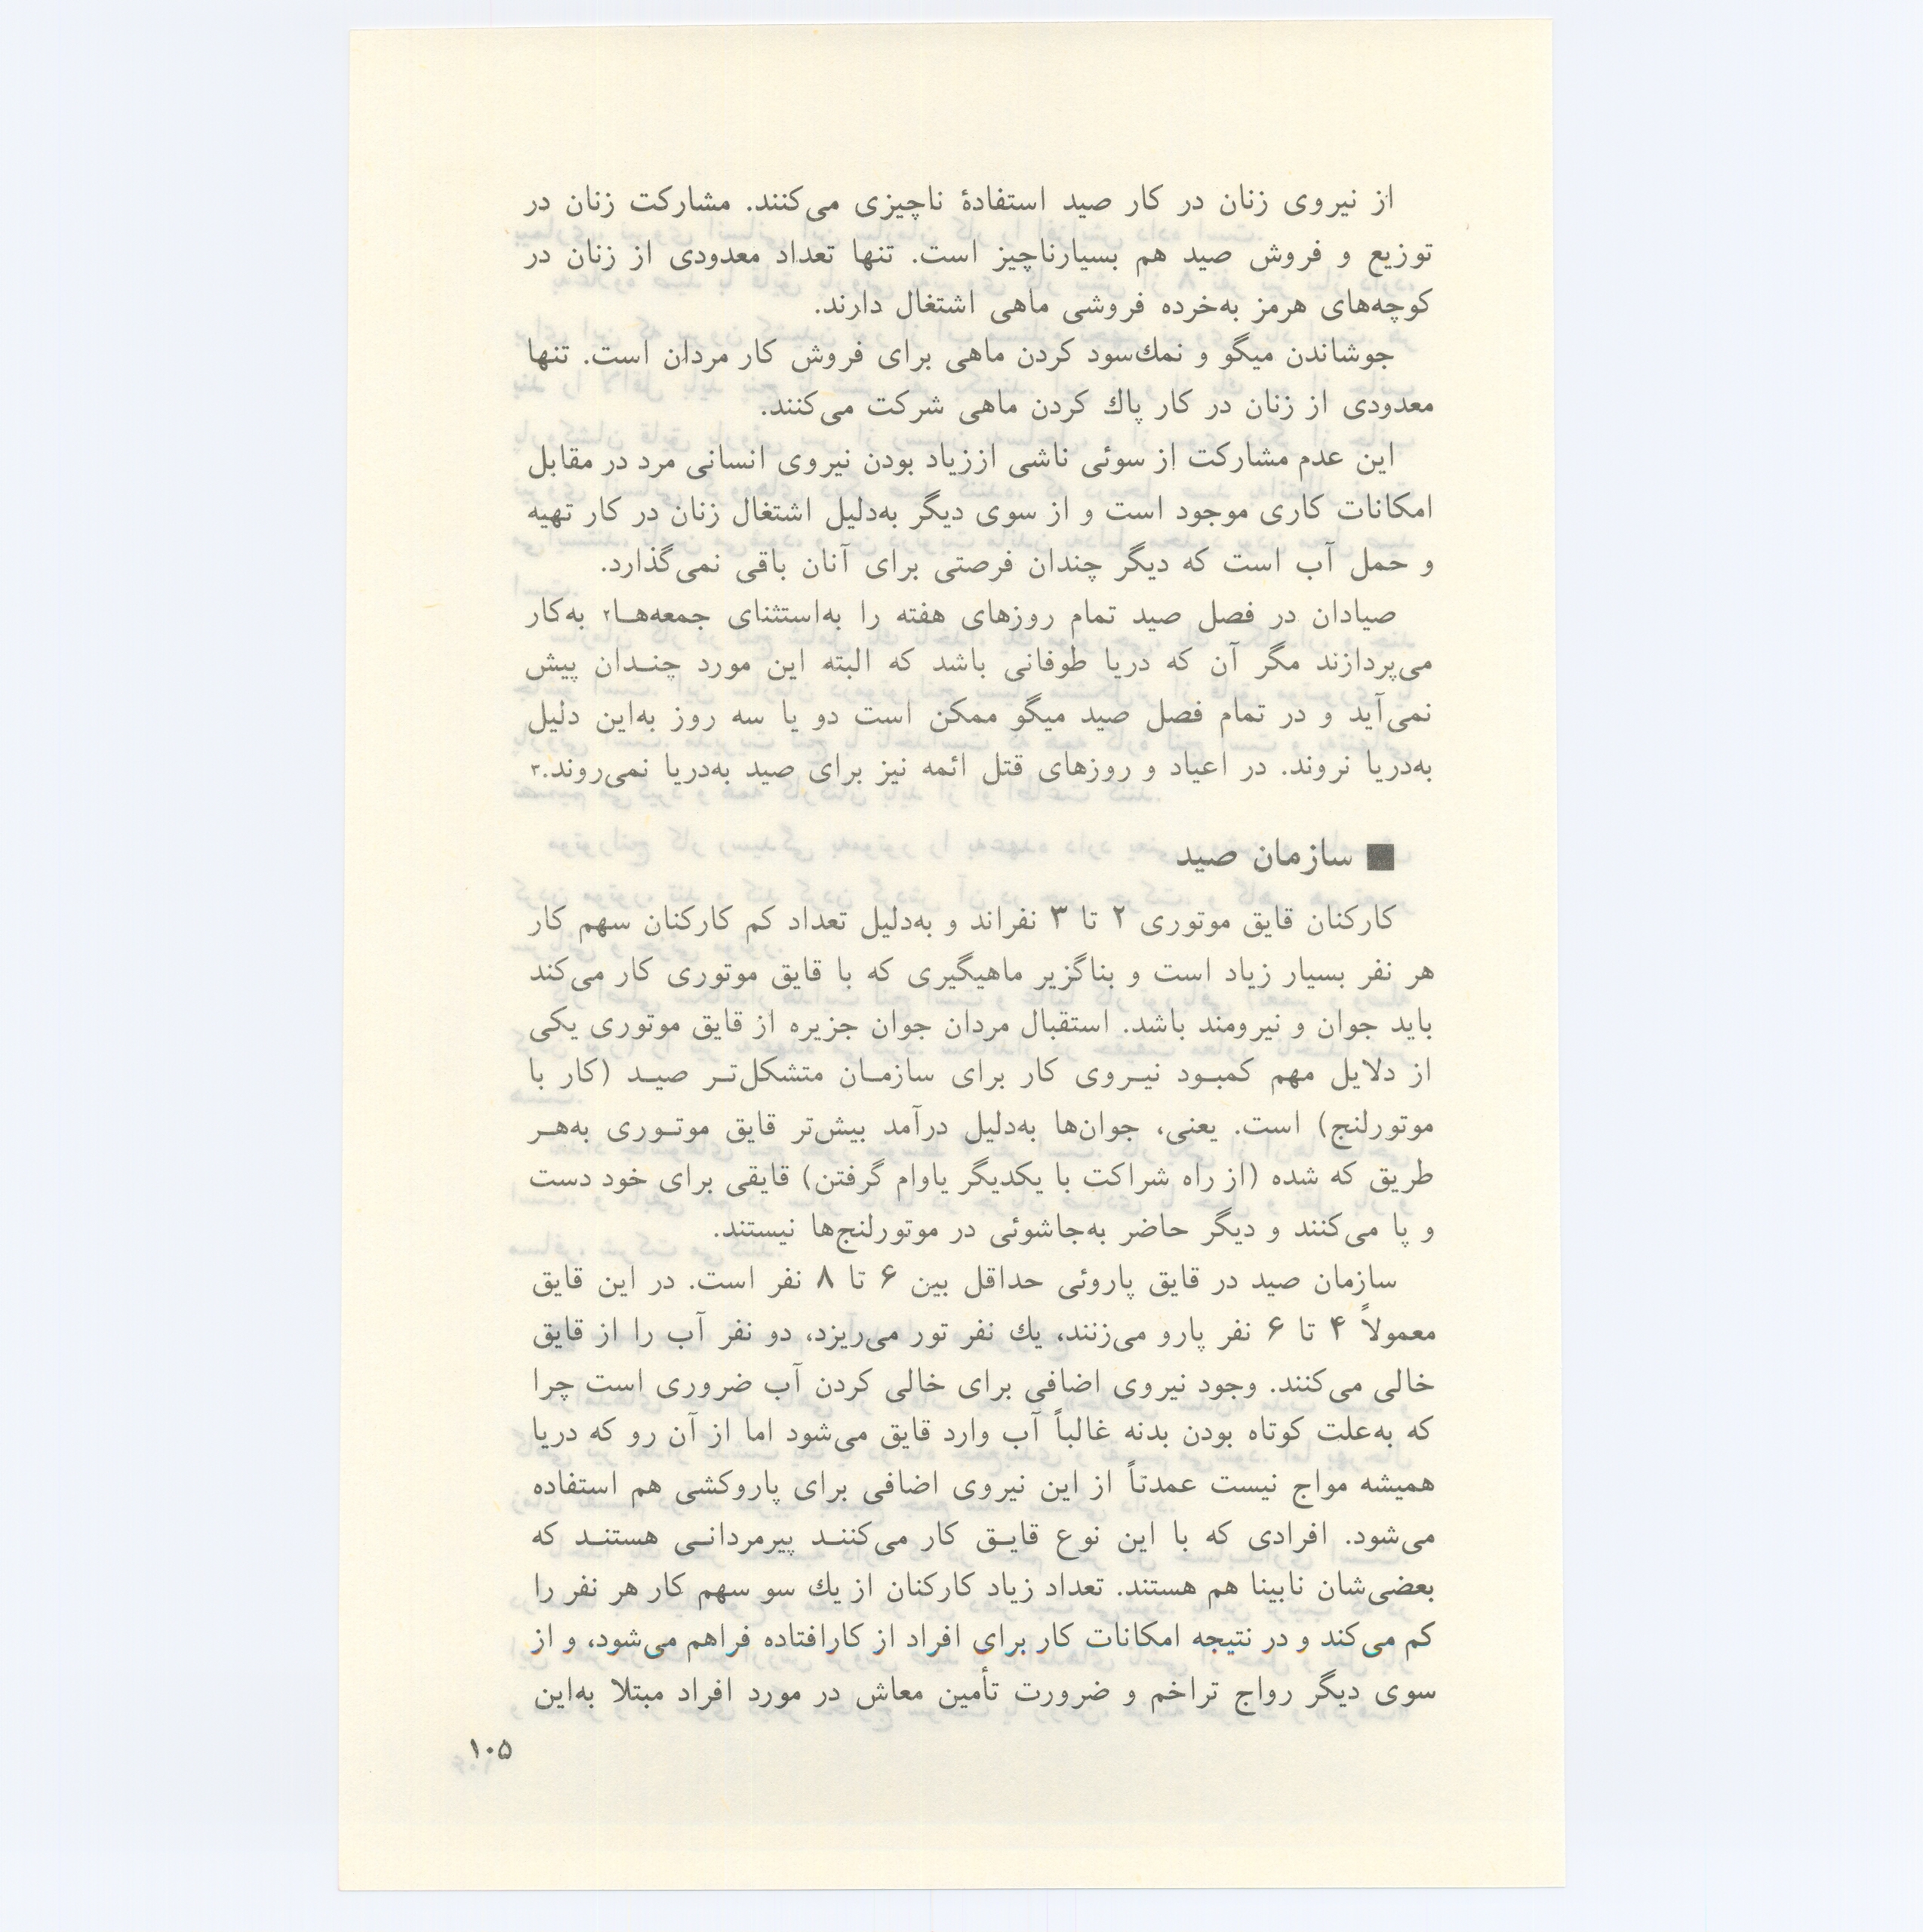 از نیروی زنان در کار صید استفادۀ ناچیزی می‌کنند. مشارکت زنان در
توزیع و فروش صید هم بسیارناچیز است. تنها تعداد معدودی از زنان در
کوچه‌های هرمز به‌خرده فروشی ماهی اشتغال دارند.
جوشاندن میگو و نمك‌سود کردن ماهی برای فروش کار مردان است. تنها
معدودی از زنان در کار پاك کردن ماهی شرکت می‌کنند.
این عدم مشارکت از سوئی ناشی اززیاد بودن نیروی انسانی مرد در مقابل
امکانات کاری موجود است و از سوی دیگر به‌دلیل اشتغال زنان در کار تهیه
و حمل آب است که دیگر چندان فرصتی برای آنان باقی نمی‌گذارد.
صیادان در فصل صید تمام روزهای هفته را به‌استثنای جمعه‌هـا۲ به‌کار
می‌پردازند مگر آن که دریا طوفانی باشد که البته این مورد چنـدان پیش
نمی‌آید و در تمام فصل صید میگو ممکن است دو یا سه روز به‌این دلیل
به‌دریا نروند. در اعیاد و روزهای قتل ائمه نیز برای صید به‌دریا نمی‌روند.۳
■ سازمان صید
کارکنان قایق موتوری ۲ تا ۳ نفراند و به‌دلیل تعداد کم کارکنان سهم کار
هر نفر بسیار زیاد است و بناگزیر ماهیگیری که با قایق موتوری کار می‌کند
باید جوان و نیرومند باشد. استقبال مردان جوان جزیره از قایق موتوری یکی
از دلایل مهم کمبـود نیـروی کار برای سازمـان متشکل‌تـر صیـد (کار با
موتورلنج) است. یعنی، جوان‌ها به‌دلیل درآمد بیش‌تر قایق موتـوری به‌هـر
طریق که شده (از راه شراکت با یکدیگر یاوام گرفتن) قایقی برای خود دست
و پا می‌کنند و دیگر حاضر به‌جاشوئی در موتورلنج‌ها نیستند.
سازمان صید در قایق پاروئی حداقل بین ۶ تا ۸ نفر است. در این قایق
معمولاً ۴ تا ۶ نفر پارو می‌زنند، یك نفر تور می‌ریزد، دو نفر آب را از قایق
خالی می‌کنند. وجود نیروی اضافی برای خالی کردن آب ضروری است چرا
که به‌علت کوتاه بودن بدنه غالباً آب وارد قایق می‌شود اما از آن رو که دریا
همیشه مواج نیست عمدتاً از این نیروی اضافی برای پاروکشی هم استفاده
می‌شود. افرادی که با این نوع قایـق کار می‌کننـد پیرمردانـی هستنـد که
بعضی‌شان نابینا هم هستند. تعداد زیاد کارکنان از یك سو سهم کار هر نفر را
کم می‌کند و در نتیجه امکانات کار برای افراد از کارافتاده فراهم می‌شود، و از
سوی دیگر رواج تراخم و ضرورت تأمین معاش در مورد افراد مبتلا به‌این
۱۰۵